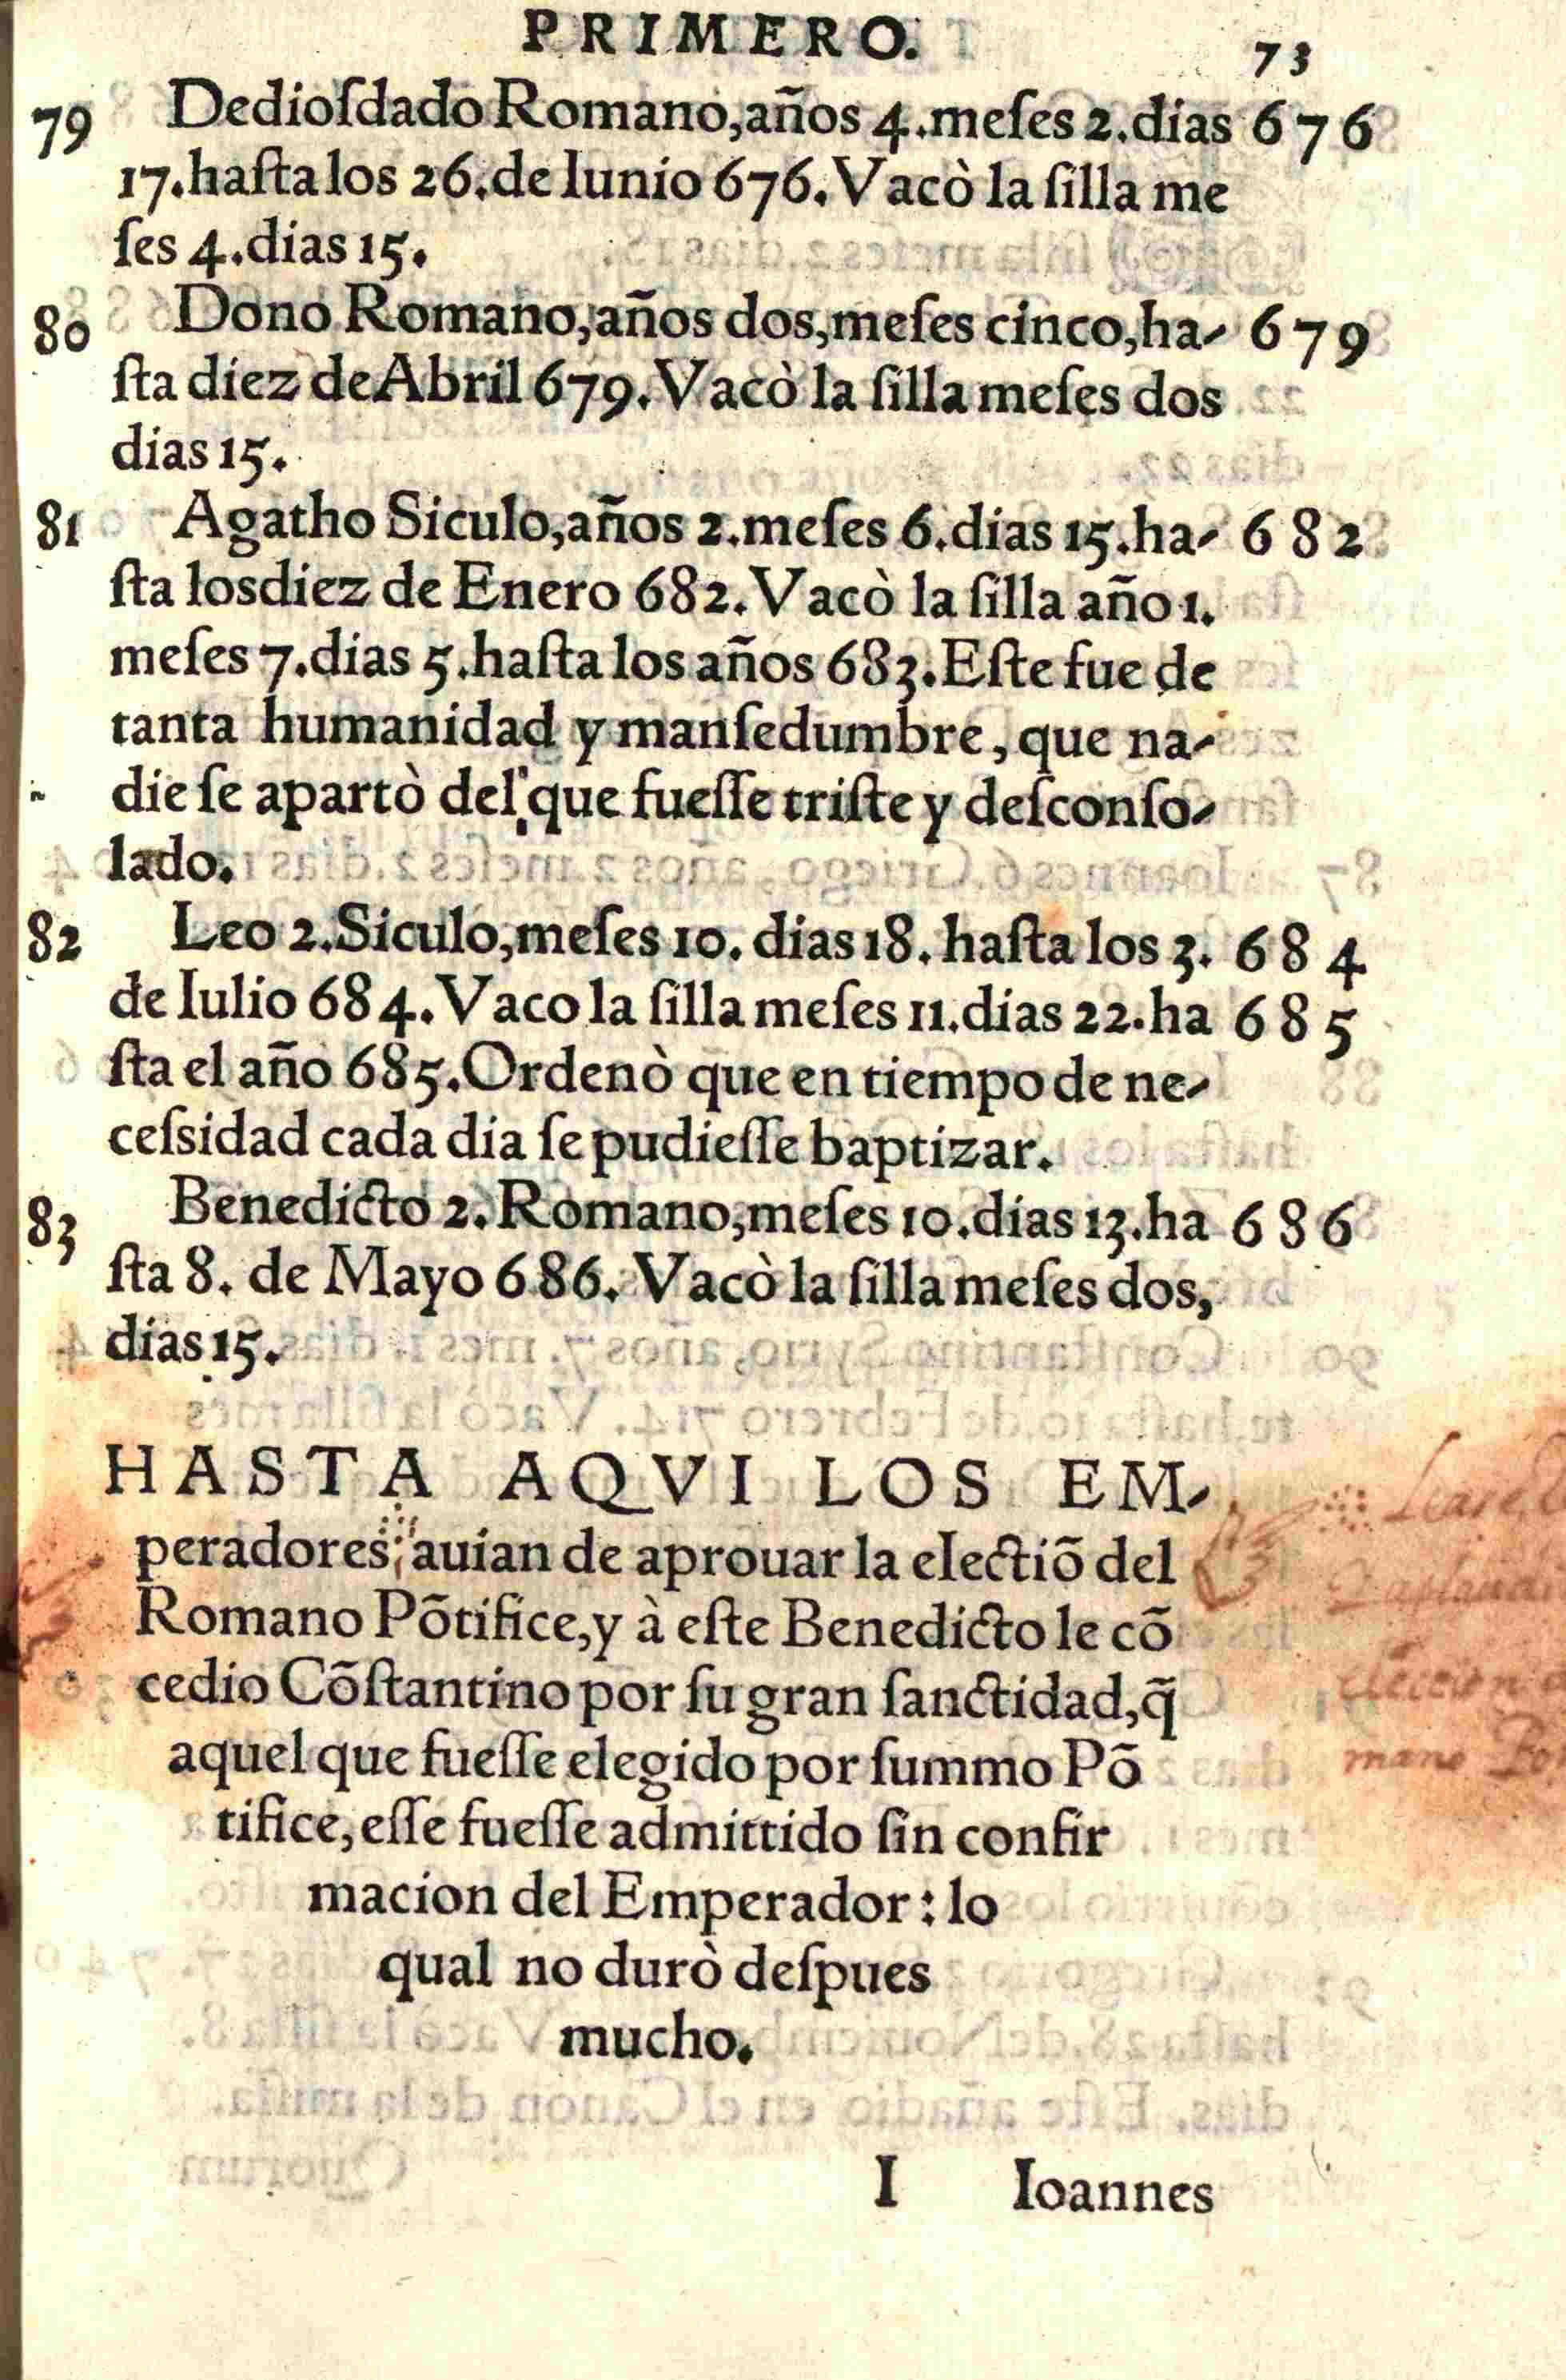 PRIMERO.
73
79 Dedioſdado Romano,años 4.meſes 2.dias 676
17.haſta los 26.de Iunio 676.Vacò la ſilla me
ſes 4.dias 15.
80 Dono Romano,años dos,meſes cinco,ha- 679
ſta diez de Abril 679.Vacò la ſilla meſes dos
dias 15.
81 Agatho Siculo,años 2.meſes 6.dias 15.ha- 682
ſta losdiez de Enero 682.Vacò la ſilla año 1.
meſes 7.dias 5.haſta los años 683.Eſte fue de
tanta humanidad y manſedumbre, que na-
die ſe apartò del que fueſſe triſte y deſconſo-
lado.
82 Leo 2.Siculo,meſes 10. dias 18. haſta los 3. 684
de Iulio 684.Vaco la ſilla meſes 11.dias 22.ha 685
ſta el año 685.Ordenò que en tiempo de ne-
ceſsidad cada dia ſe pudieſſe baptizar.
83 Benedicto 2. Romano,meſes 10.dias 13.ha 686
ſta 8. de Mayo 686. Vacò la ſilla meſes dos,
dias 15.
HASTA AQVI LOS EM-
peradores auian de aprouar la electiõ del
Romano Põtifice,y à eſte Benedicto le cõ
cedio Cõſtantino por ſu gran ſanctidad,q̃
aquel que fueſſe elegido por ſummo Põ
tifice,eſſe fueſſe admittido ſin confir
macion del Emperador: lo
qual no durò deſpues
mucho.
eleccion
mano
I Ioannes